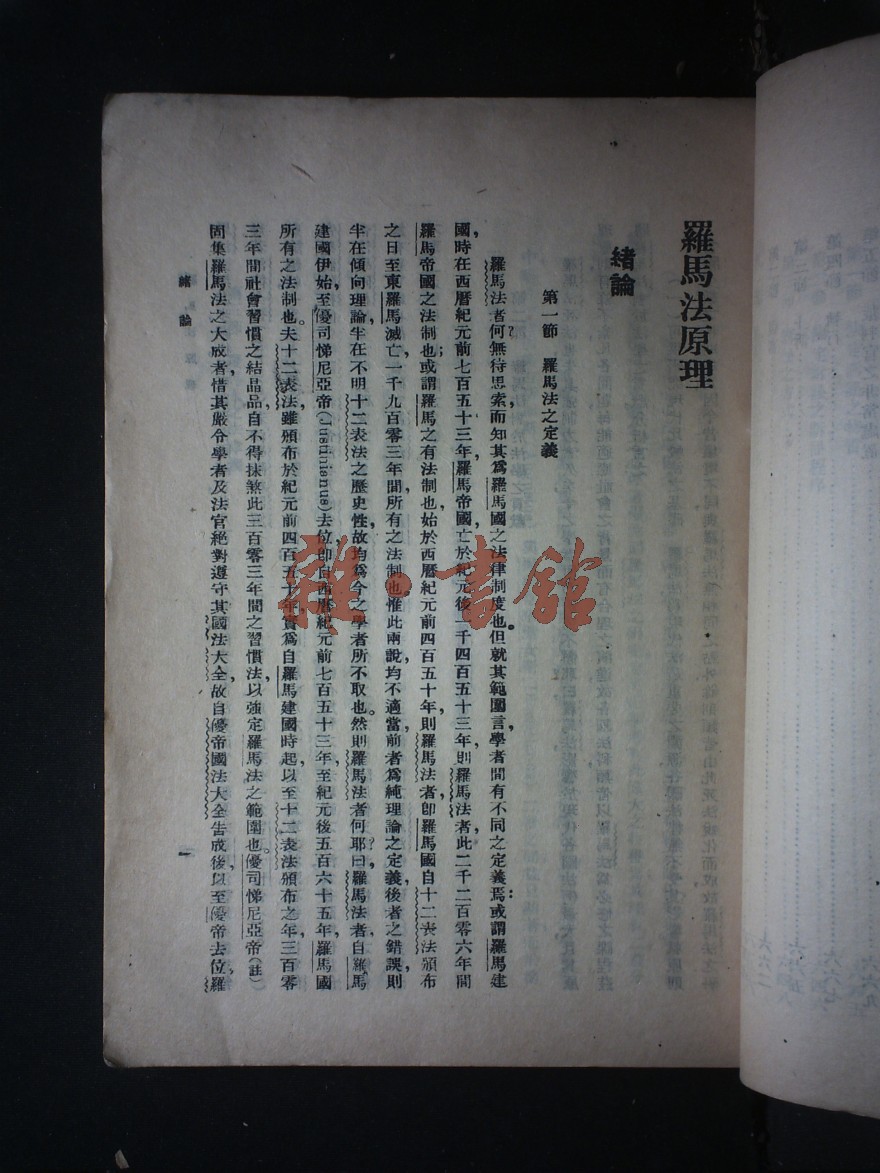 羅馬法原理
緒論
第一節　羅馬法之定義
羅馬法者何？無待思索而知其爲羅馬國之法律制度也。但就其範圍言，學者間有不同之定義焉：或謂羅馬建
國，時在西曆紀元前七百五十三年，羅馬帝國亡於紀元後一千四百五十三年，則羅馬法者，此二千二百零六年間
羅馬帝國之法制也；或謂羅馬之有法制也，始於西曆紀元前四百五十年，則羅馬法者，卽羅馬國自十二表法頒布
之日至東羅馬滅亡，一千九百零三年間所有之法制也。惟此兩說，均不適當，前者爲純理論之定義，後者之錯誤，則
半在傾向理論，半在不明十二表法之歷史性，故均爲今之學者所不取也。然則羅馬法者何耶？曰：羅馬法者，自羅馬
建國伊始，至優司悌尼亞帝(Justinianus)去位，卽自西曆紀元前七百五十三年至紀元後五百六十五年，羅馬國
所有之法制也。夫十二表法，雖頒布於紀元前四百五十年，實爲自羅馬建國時起，以至十二表法頒布之年，三百零
三年間社會習慣之結晶品，自不得抹煞此三百零三年間之習慣法，以強定羅馬法之範圍也。優司悌尼亞帝(註)
固集羅馬法之大成者，惜其嚴令學者及法官絕對遵守其國法大全，故自優帝國法大全告成後，以至優帝去位，羅
緒論
一
雜·書館